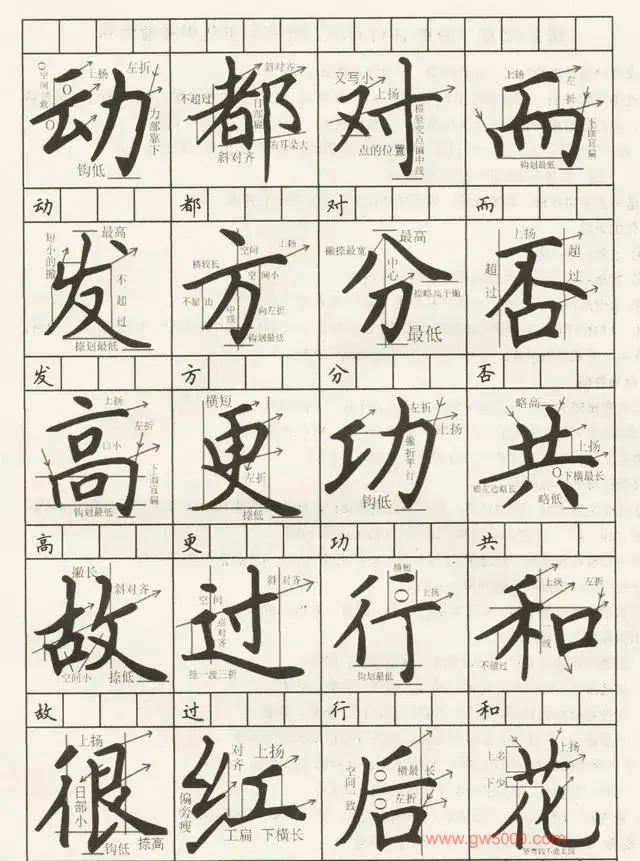 动 都 对 而
上扬 左折 空间一致 力部靠下 钩低
斜对齐 不超过 日部扁 右耳朵大 斜对齐
又写小 上扬 横竖交点偏中线 点的位置
上扬 左折 下面宜扁 钩划最低
动 都 对 而
发 方 分 否
最高 短小的撇 不超过 捺划最低
空间 上扬 横较长 空间小 不超出 中线 向左折 钩划最低
最高 撇捺最宽 中心 捺略高于撇 最低
上扬 超过 超过
发 方 分 否
高 更 功 共
上扬 左折 口小 下面宜扁 钩划最低
横短 左折 捺低
左折 上扬 撇折平行 钩低
略高 上扬 下横最长 横左边略长 略低
高 更 功 共
故 过 行 和
撇长 斜对齐 空间小 捺低
斜对齐 空间 点对齐 捺一波三折
横短 上扬 钩划最低
上扬 左折 不超过 线
故 过 行 和
很 红 后 花
上扬 日部小 钩低 捺高
对齐 上扬 偏旁瘦 工扁 下横长
空间一致 横最长 左折
上多 上扬 下少 竖弯钩不能太圆
www.gw5000.com